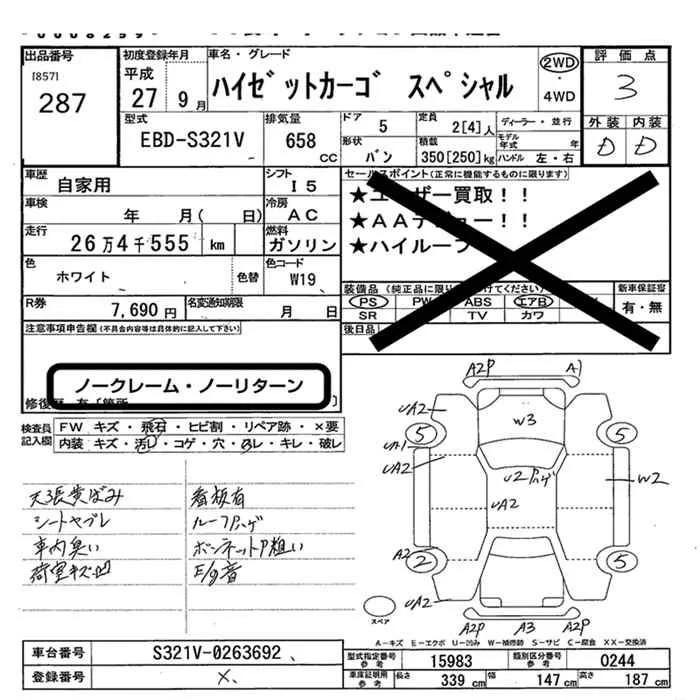 出品番号
[857]
287
初度登録年月
平成
27 9月
車名・グレード
ハイゼットカーゴ スペシャル
2WD
・
4WD
評価点
3
外装 内装
D D
型式
EBD-S321V
排気量
658
cc
ドア 5
定員 2[4]人
ディーラー・並行
形状 バン
積載 350[250]kg
モデル年式 年
ハンドル 左・右
車歴
自家用
シフト
I5
車検
年 月( 日)
冷房
AC
走行
26万4千555 km
燃料
ガソリン
色
ホワイト
色替
色コード
W19
R券
7,690円
名変通知期限
月 日
セールスポイント(正常に機能するものに限ります)
★ユーザー買取!!
★AAデビュー!!
★ハイルーフ
装備品
新車保証書
PS PW ABS エアB
SR TV カワ
有・無
後日品
注意事項申告欄(不具合内容等は具体的に記入して下さい)
ノークレーム・ノーリターン
修復歴 有〔箇所 〕
検査員
記入欄
FW キズ・飛石・ヒビ割・リペア跡・×要
内装 キズ・汚レ・コゲ・穴・スレ・キレ・破レ
天張黄ばみ
シートヤブレ
車内臭い
荷室キズ凹
看板有
ルーフPハゲ
ボンネットP粗い
E/g音
A2P A)
UA2
5
W3
5
UA1
UA2
U2Pハゲ
UA2
W2
A2
2
5
UA2
スペア
A2P A3 A2P
A-キズ E-エクボ U-凹み W-補修跡 S-サビ C-腐食 XX-交換済
車台番号
S321V-0263692
登録番号
×
型式指定番号
参考
15983
類別区分番号
参考
0244
車庫証明用
参考
長さ
339 cm
幅
147 cm
高さ
187 cm